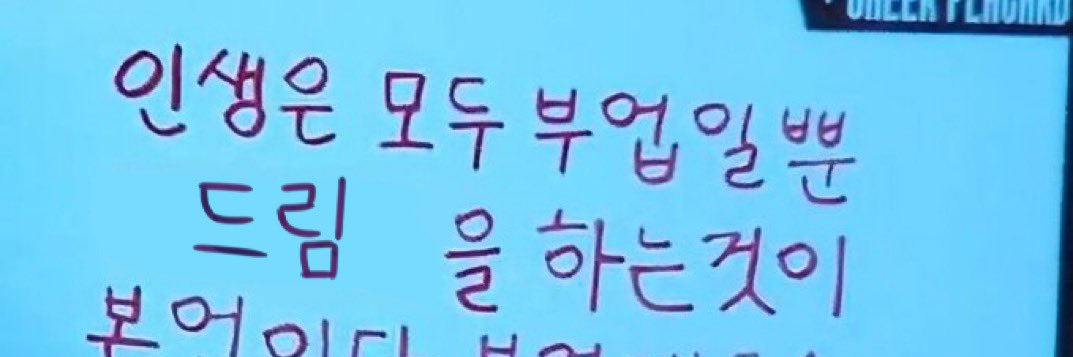 CHEER PLACARD
인생은 모두 부업일뿐
드림 을 하는것이
본업이다